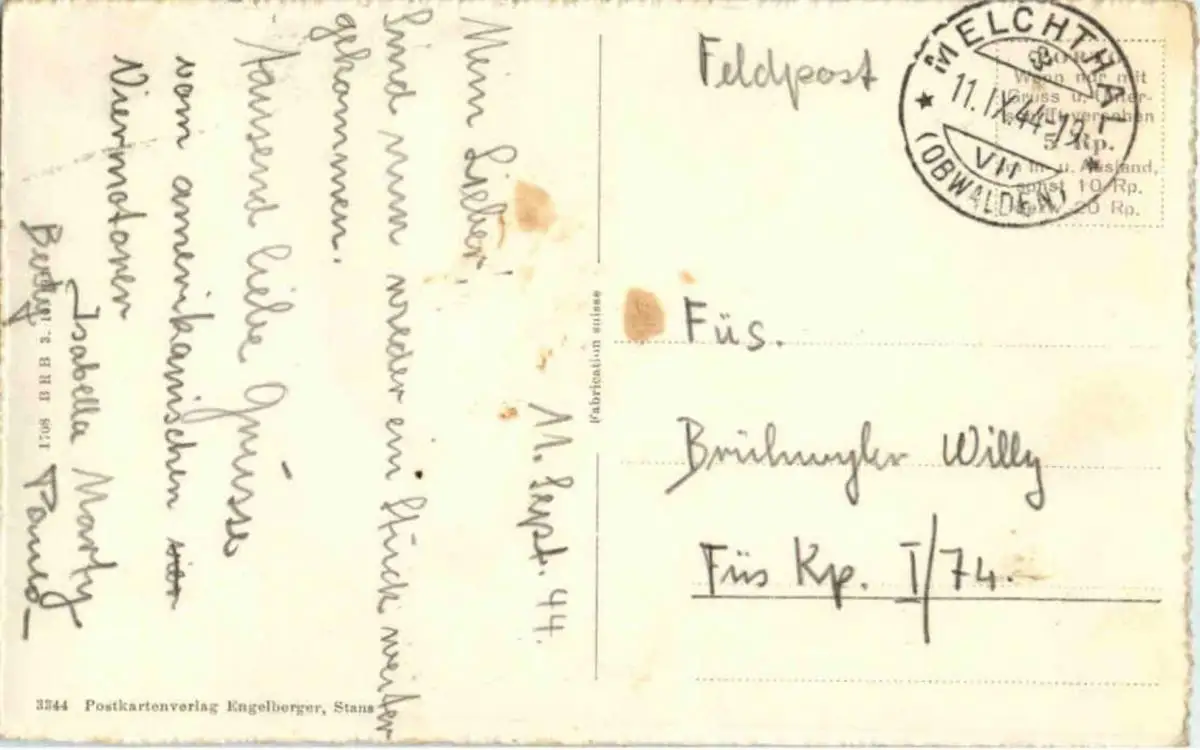 11. Sept. 44.
Mein Lieber,
Sind nun wieder ein Stück weiter
gekommen.
Tausend liebe Grüsse
vom amerikanischen vier
Viermotoren
Isabella Marty
Berty
Feldpost
MELCHTHAL
11.IX.44-19
VII
(OBWALDEN)
Wenn nur mit
Gruss u. Unter-
schrift versehen
5 Rp.
im In- u. Ausland,
sonst 10 Rp.
20 Rp.
Füs.
Brühwyler Willy
Füs Kp. I/74.
Fabrication suisse
1708 BRB 3.
3244 Postkartenverlag Engelberger, Stans